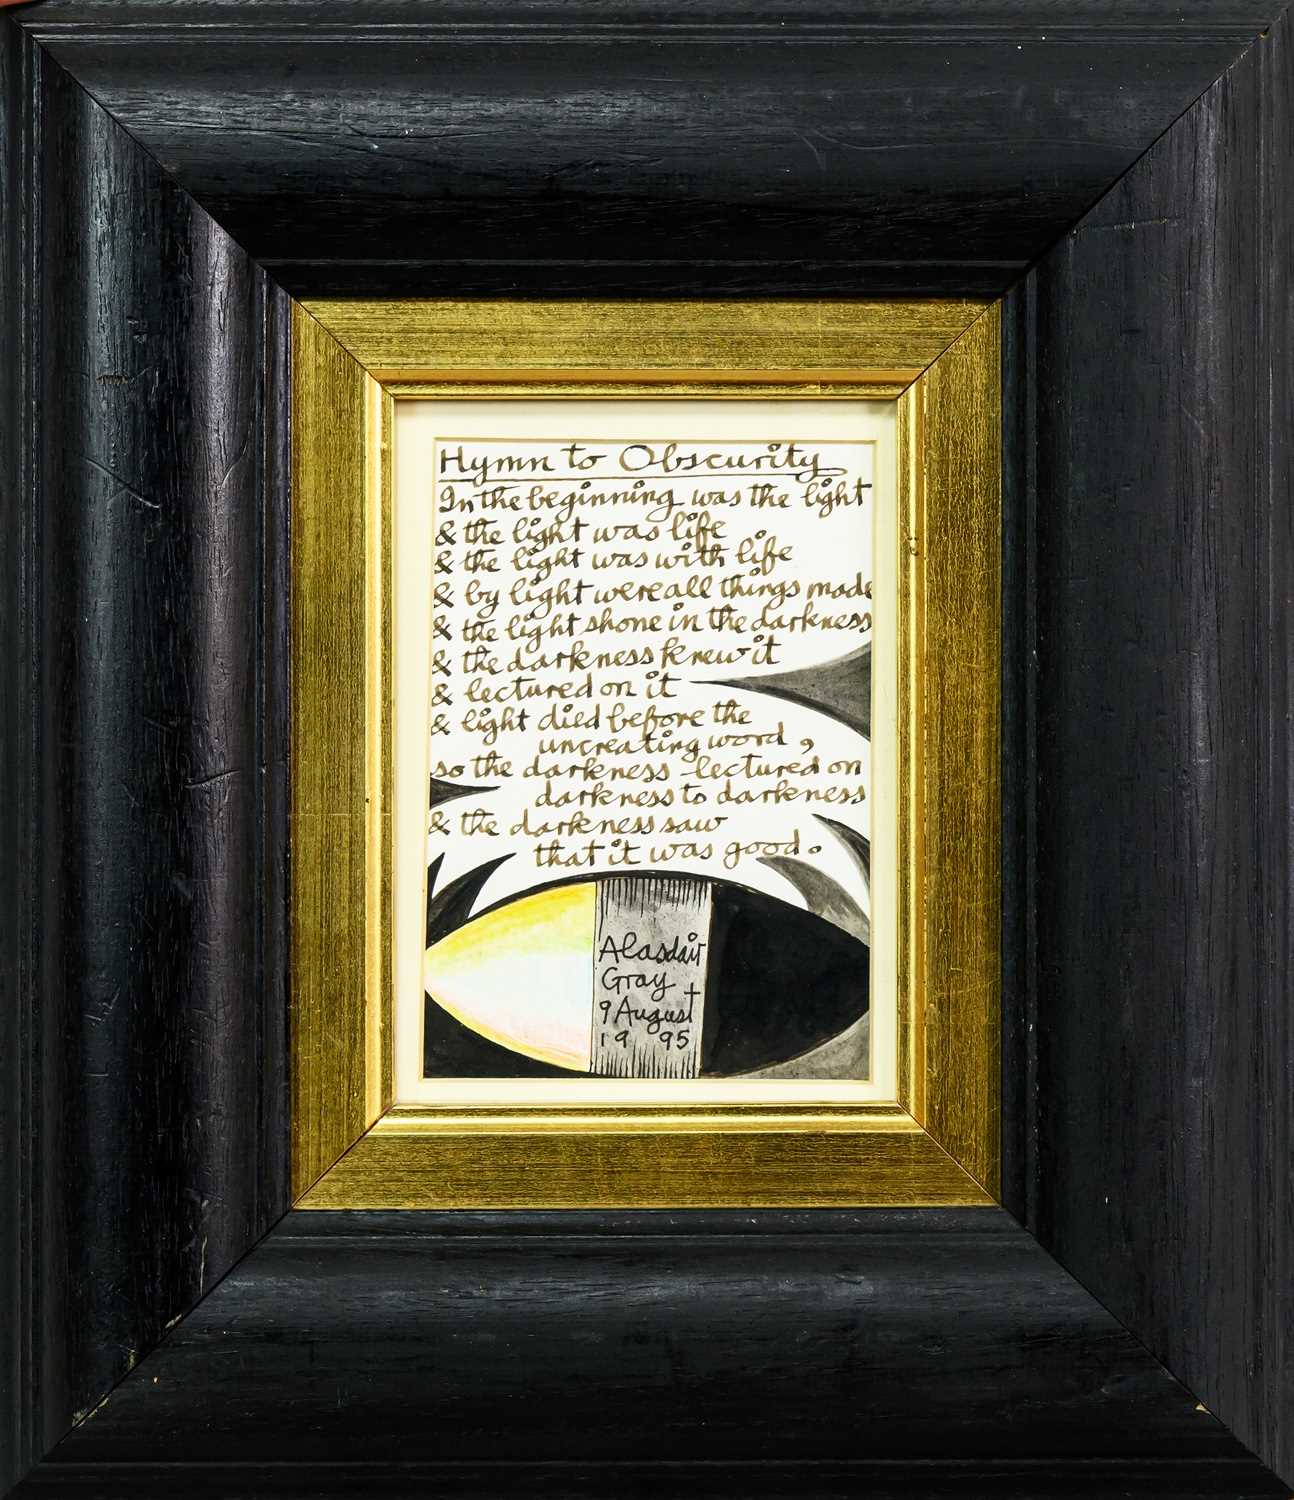 Hymn to Obscurity
In the beginning was the light
& the light was life
& the light was with life
& by light were all things made
& the light shone in the darkness
& the darkness knew it
& lectured on it
& light died before the
uncreating word,
so the darkness lectured on
darkness to darkness
& the darkness saw
that it was good.
Alasdair
Gray
9 August
1995